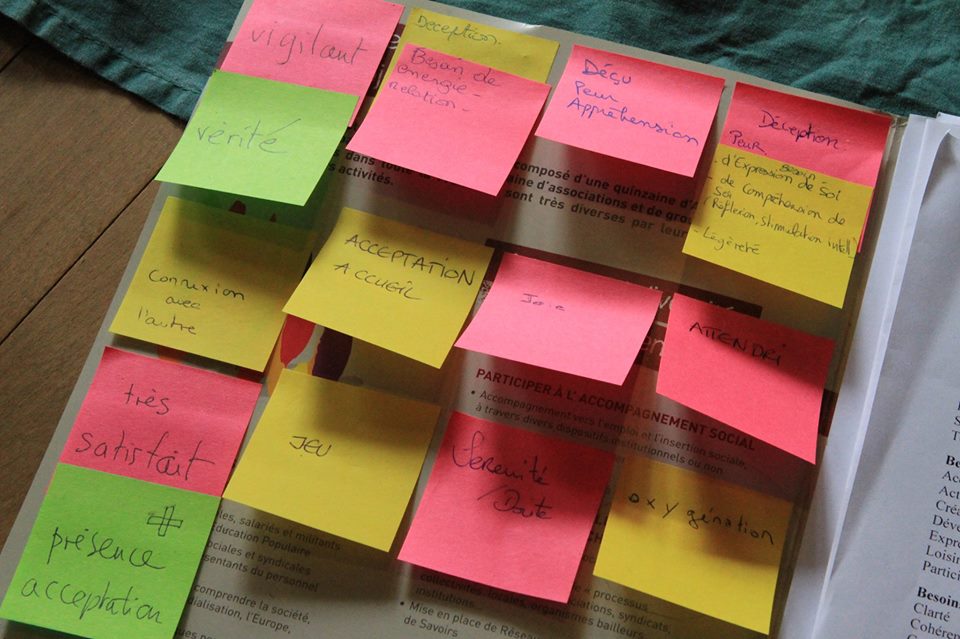 vigilant
Déception.
Besoin de
énergie -
relation -
Déçu
Peur
Appréhension
Déception
Peur
Besoin
- d'Expression de Soi
- de Compéhension de
Soi
(Réflexion, Stimulation intell)
- Légèreté
vérité
dans toute
composé d'une quinzaine d'
activités.
d'associations et de
sont très diverses par leur
connexion
avec
l'autre
ACCEPTATION
ACCUEIL
Joie
ATTENDRI
PARTICIPER À L'ACCOMPAGNEMENT SOCIAL
• Accompagnement vers l'emploi et l'insertion sociale,
à travers divers dispositifs institutionnels ou non
très
satisfait
JEU
Serenité
/Doute
oxygénation
présence
acceptation
salariés et militants
Education Populaire
sociales et syndicales
du personnel
comprendre la société,
l'Europe,
« processus
collectivités locales, organismes bailleurs,
institutions.
• Mise en place de
de Savoirs
Besoins
Clarté